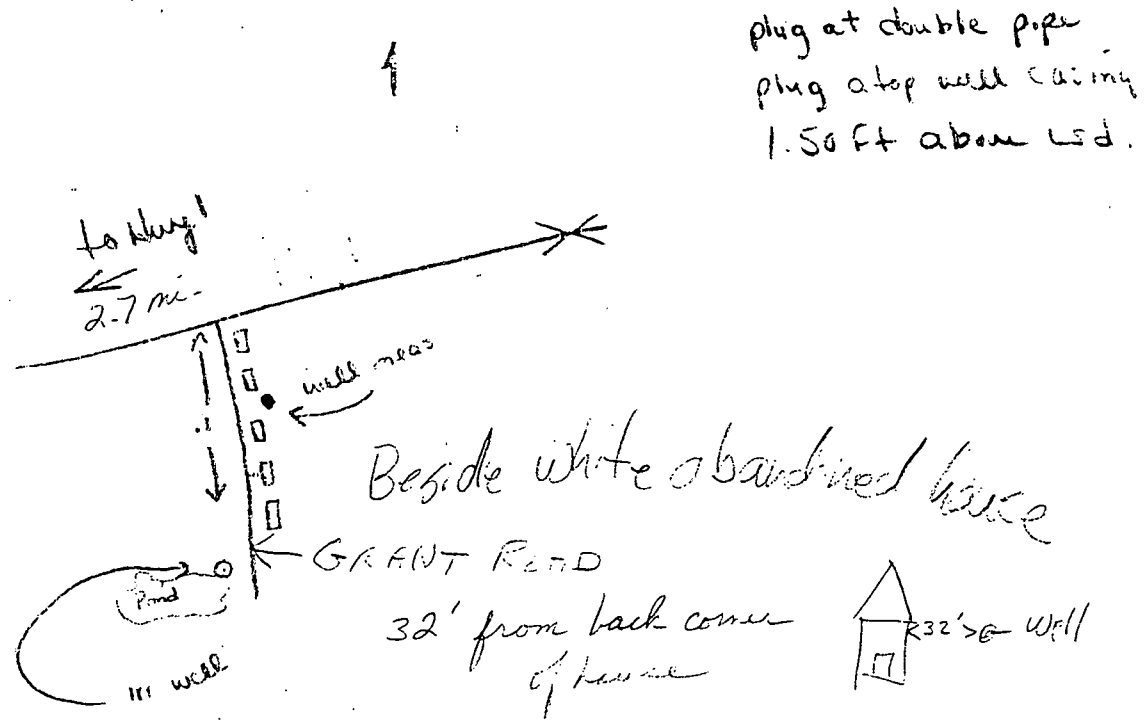 plug at double pipe
plug atop well casing
1.50 ft above Lsd.
to Hwy 1
2.7 mi.
.1
well meas
Beside white abandined house
GRANT ROAD
Pond
32' from back corner
of house
32' Well
well